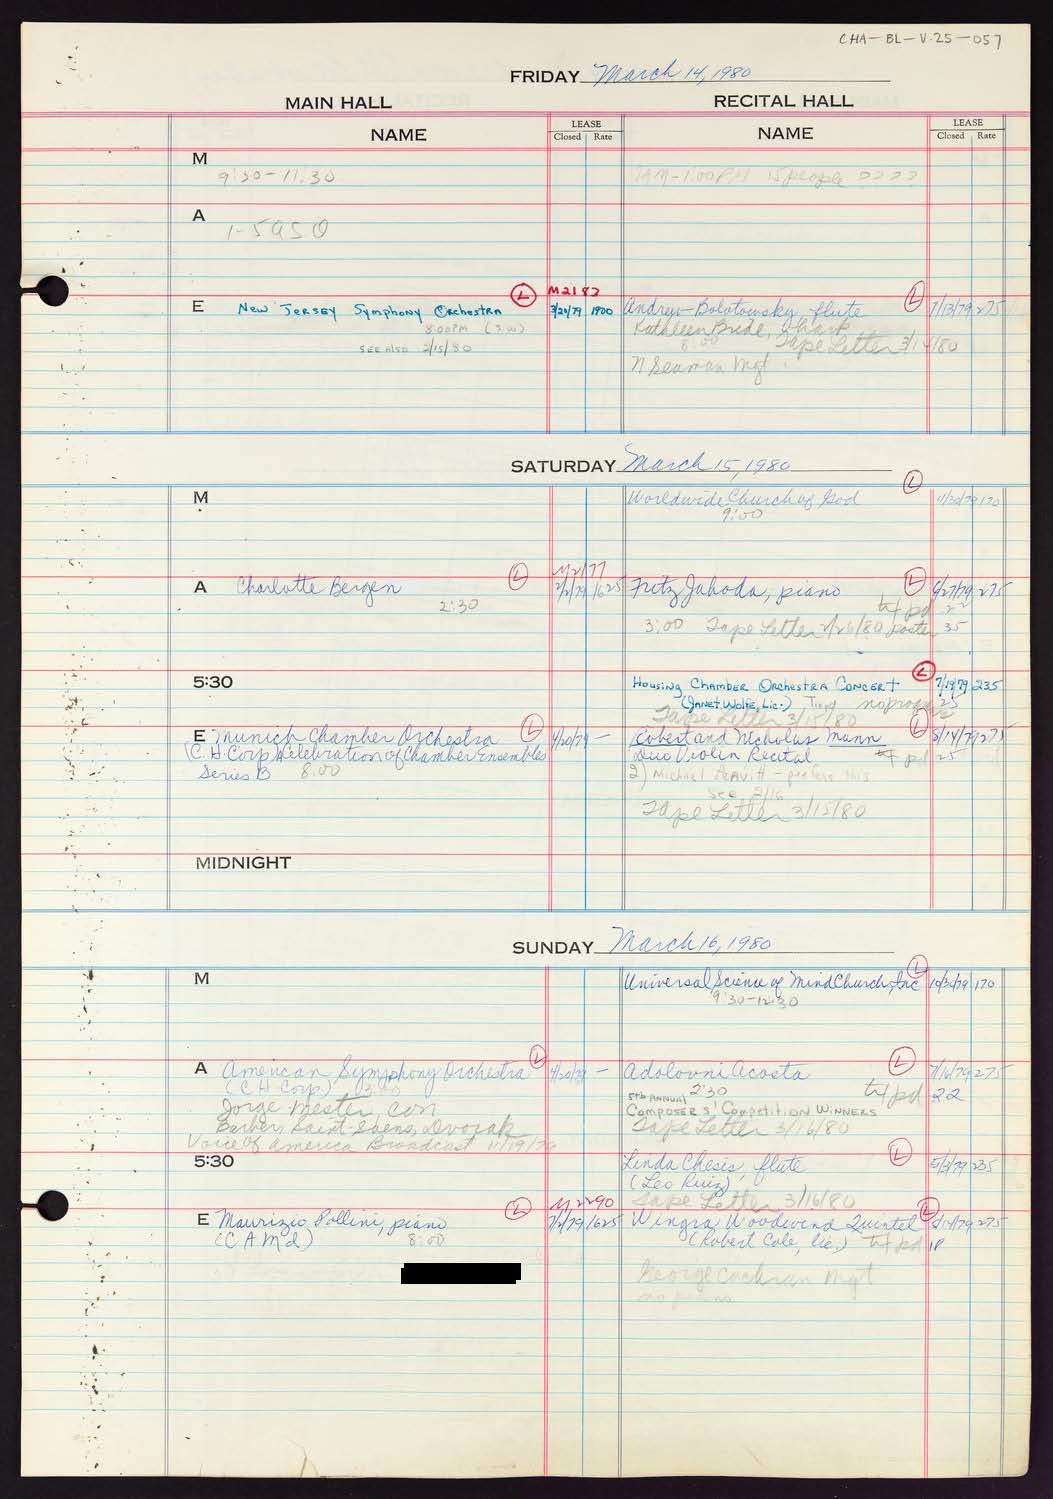 CHA-BL-V.25-057
FRIDAY March 14, 1980
MAIN HALL RECITAL HALL
NAME LEASE Closed Rate NAME LEASE Closed Rate
M
9:30-11:30
9AM-1:00PM 15 people ????
A
1-5 ASO
M2182
E New Jersey Symphony Orchestra L 3/20/79 1900
8:00PM
SEE ALSO 2/15/80
Andrew Bolotowsky, flute L 7/13/79 275
Kathleen Bride,
8:00 Tape Letter 3/14/80
N Seaman Mgt
SATURDAY March 15, 1980
M
Worldwide Church of God L 11/30/79 170
9:00
M2177
A Charlotte Bergen L 2/2/79 1625
2:30
Fritz Jahoda, piano L 9/27/79 275
txf pd 22
3:00 Tape Letter 2/26/80 poster 35
5:30
Housing Chamber Orchestra Concert L 7/19/79 235
(Janet Wolfe, Lic.) 25
Tape Letter 3/15/80
E Munich Chamber Orchestra L 4/20/79 —
(C H Corp Celebration of Chamber Ensembles
Series B 8:00
Robert and Nicholas Mann L 8/14/79 275
Duo Violin Recital txf pd 25
2) Michael Leavitt - prefers this
See 2/16
Tape Letter 3/15/80
MIDNIGHT
SUNDAY March 16, 1980
M
Universal Science of Mind Church, Inc L 10/30/79 170
9:30-12:30
A American Symphony Orchestra L 4/20/79 —
(C H Corp) 3:00
Jorge Mester, con
Barber, Saint-Saens, Dvorak
Voice of America Broadcast 11/19/79
Adolovni Acosta L 7/16/79 275
2:30 txf pd 22
5th ANNUAL
COMPOSERS' COMPETITION WINNERS
Tape Letter 3/16/80
5:30
Linda Chesis, flute L 5/3/79 235
(Leo Ruiz)
Tape Letter 3/16/80
M2290
E Maurizio Pollini, piano L 7/2/79 1625
(C A M I) 8:00
Wingra Woodwind Quintet L 8/14/79 275
(Robert Cole, lic.) txf pd 18
George Cochran Mgt
no piano